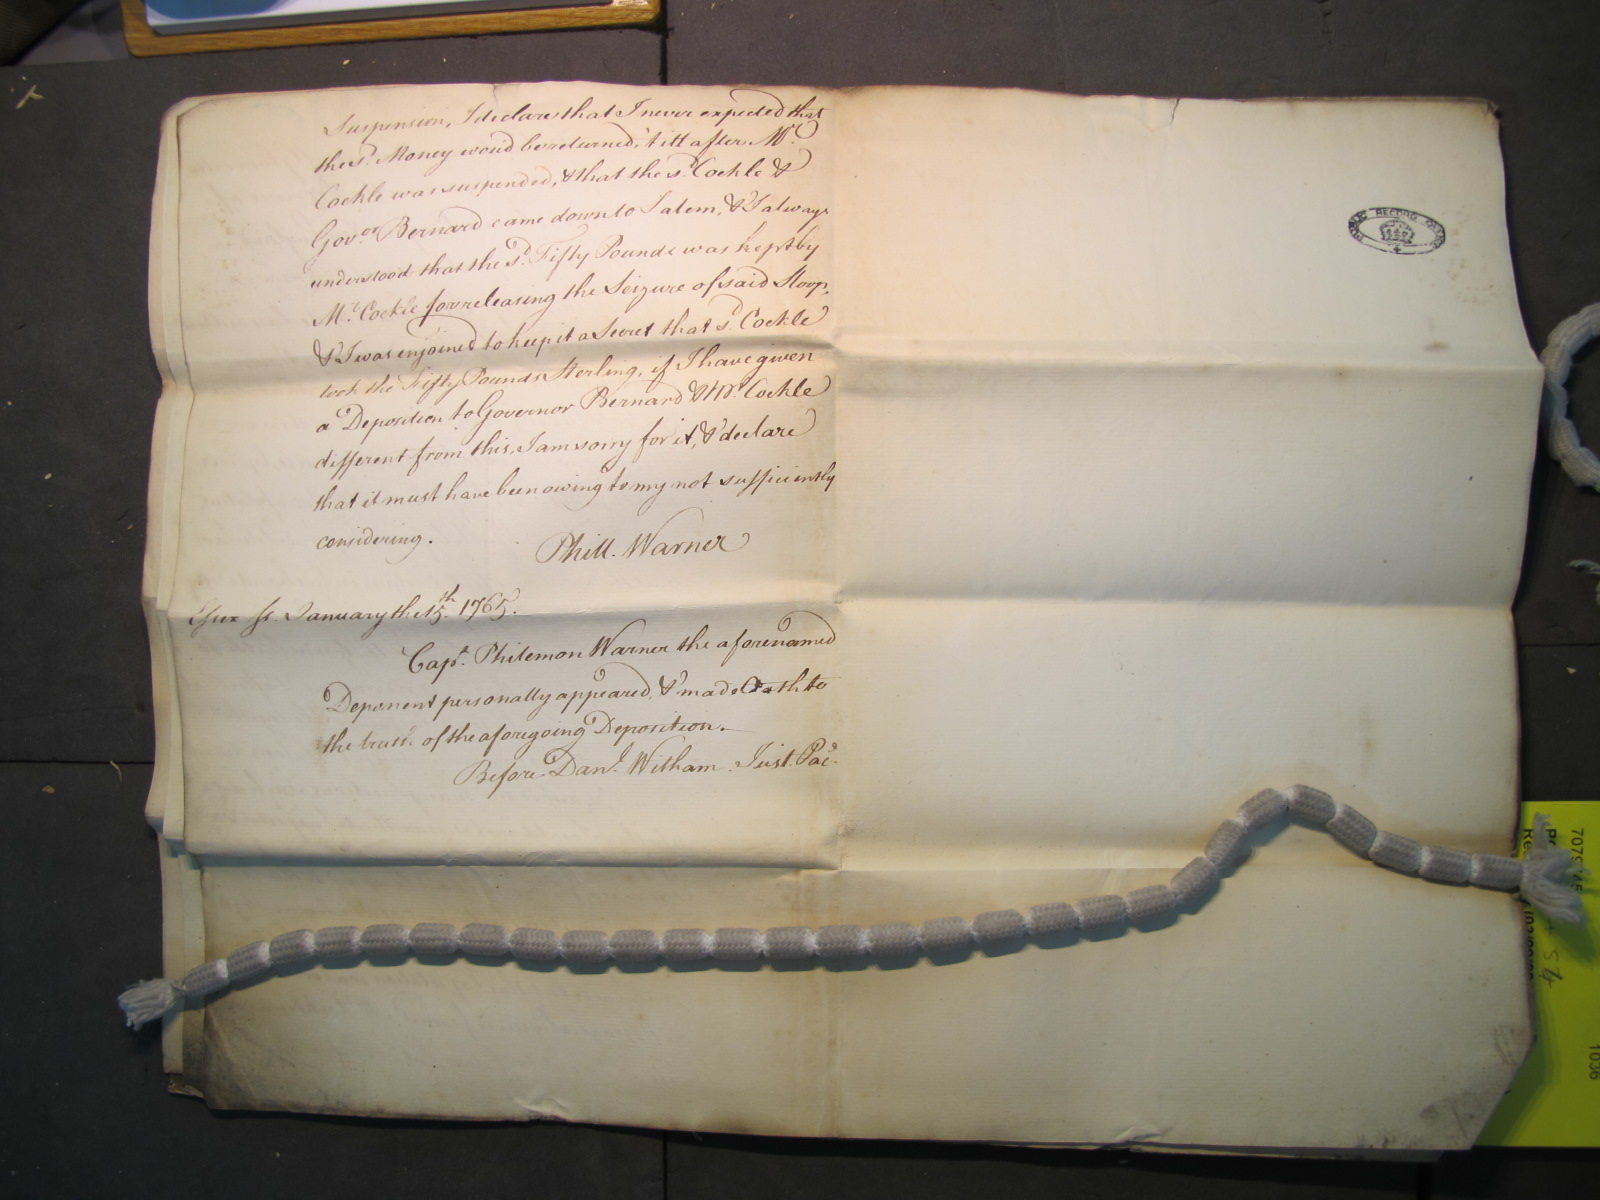 Suspension, I declare that I never expected that
the sd. Money would be returned, 'till after Mr.
Cockle was suspended, & that the sd. Cockle &
Govor. Bernard came down to Salem, & I always
understood that the sd. Fifty Pounds was kept by
Mr. Cockle for releasing the Seizure of said Sloop,
& I was enjoined to keep it a Secret that sd. Cockle
took the Fifty Pounds Sterling, if I have given
a Deposition to Governor Bernard & Mr. Cockle
different from this, I am sorry for it, & declare
that it must have been owing to my not sufficiently
considering.
Phill. Warner
Essex Ss. January the 15th. 1765.
Capt. Philemon Warner the aforenamed
Deponent personally appeared, & made Oath to
the truth of the aforegoing Deposition.
Before Danl. Witham Just. Pac.
PUBLIC RECORD OFFICE
7079
1036